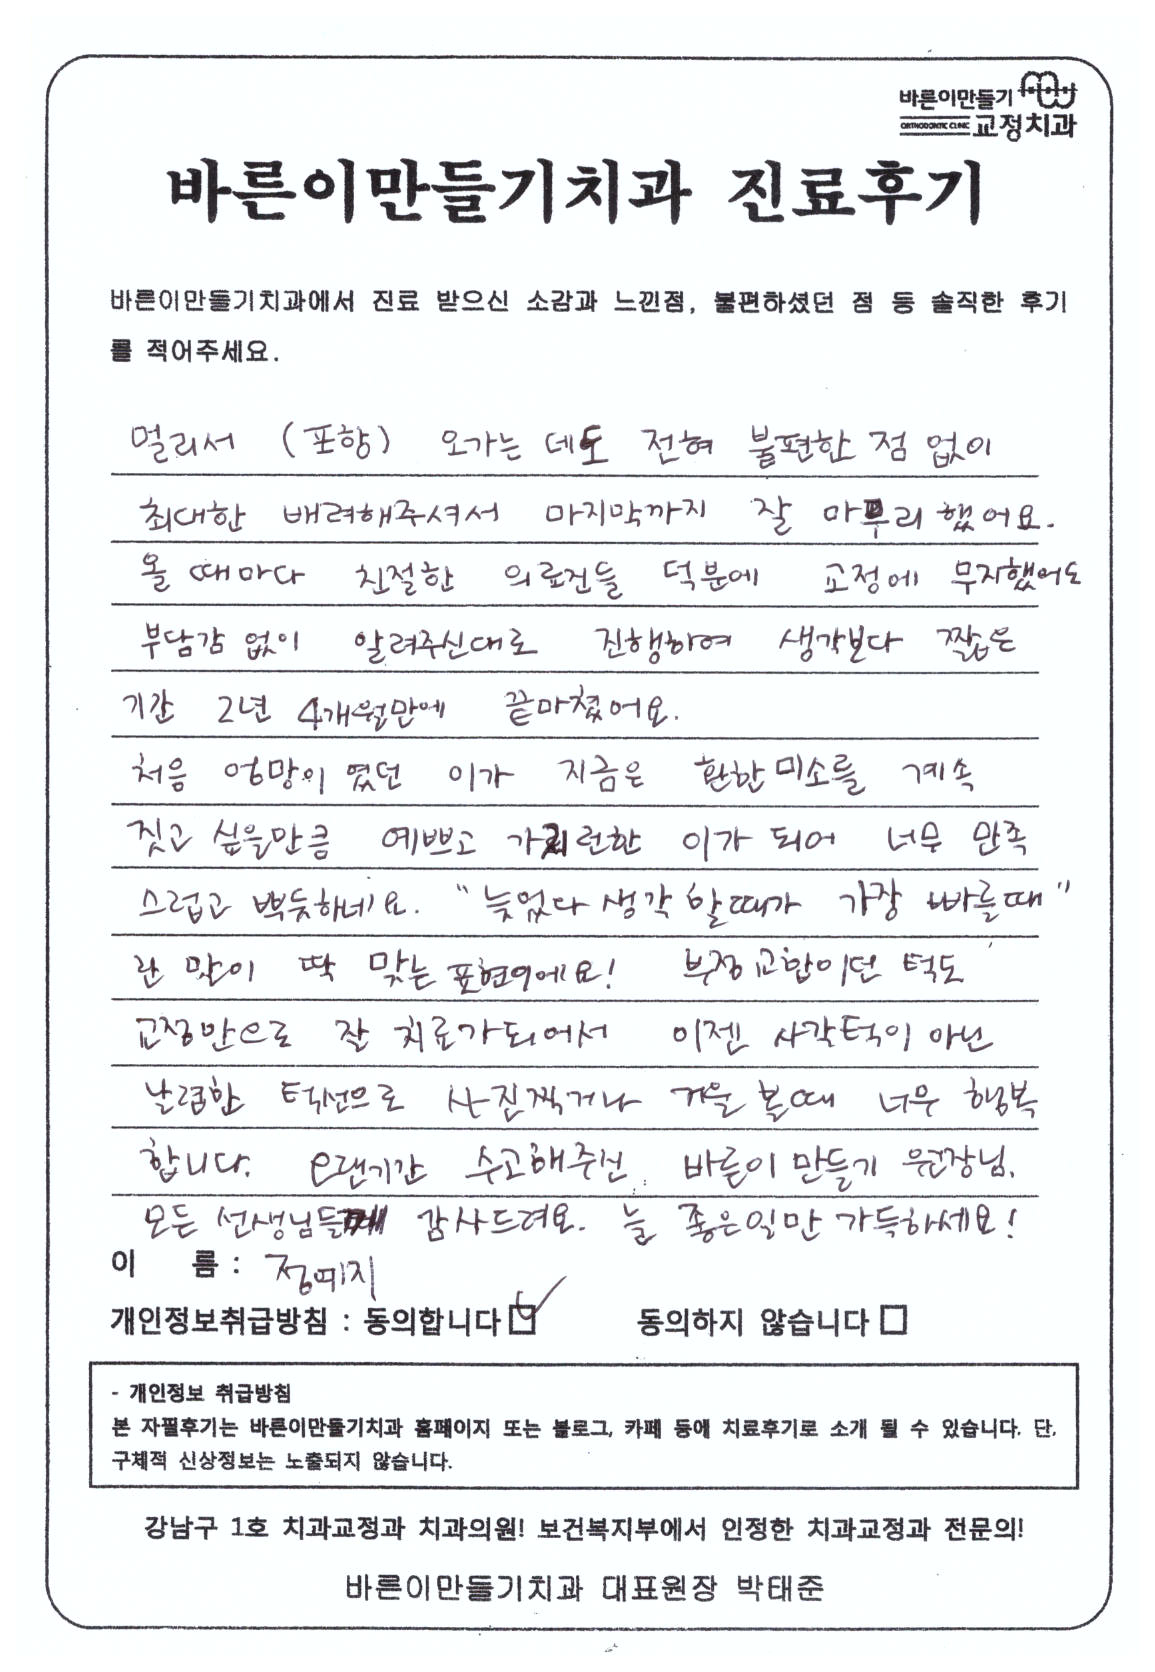 바른이만들기
ORTHODONTIC CLINIC 교정치과
바른이만들기치과 진료후기
바른이만들기치과에서 진료 받으신 소감과 느낀점, 불편하셨던 점 등 솔직한 후기
를 적어주세요.
멀리서 (포항) 오가는 데도 전혀 불편한 점 없이
최대한 배려해주셔서 마지막까지 잘 마무리 했어요.
올 때마다 친절한 의료진들 덕분에 교정에 무지했어도
부담감 없이 알려주신대로 진행하여 생각보다 짧은
기간 2년 4개월만에 끝마쳤어요.
처음 엉망이 였던 이가 지금은 환한 미소를 계속
짓고 싶을만큼 예쁘고 가지런한 이가 되어 너무 만족
스럽고 뿌듯하네요. "늦었다 생각 할때가 가장 빠를때"
란 말이 딱 맞는 표현이에요! 부정교합이던 턱도
교정만으로 잘 치료가되어서 이젠 사각턱이 아닌
날렵한 턱선으로 사진찍거나 거울 볼때 너무 행복
합니다. 오랜기간 수고해주신 바른이 만들기 원장님,
모든 선생님들께 감사드려요. 늘 좋은일만 가득하세요!
이 름 : 정예지
개인정보취급방침 : 동의합니다 동의하지 않습니다
- 개인정보 취급방침
본 자필후기는 바른이만들기치과 홈페이지 또는 블로그, 카페 등에 치료후기로 소개 될 수 있습니다. 단,
구체적 신상정보는 노출되지 않습니다.
강남구 1호 치과교정과 치과의원! 보건복지부에서 인정한 치과교정과 전문의!
바른이만들기치과 대표원장 박태준